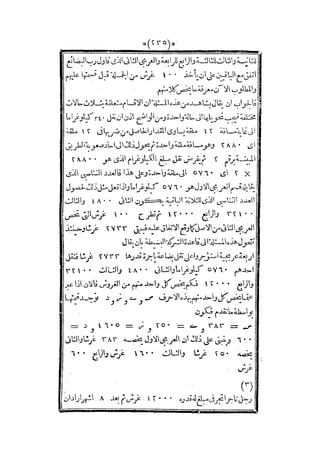 *(٢٣٥)*
للثانية والثالث للثالثة والرابع للرابعة والعربجى الثانى الذى قاول رب البضائع
اتفق مع الباقين على ان يأخذ ١٠٠ غرش من الجملة قبل قسمتها عليهم
والمطلوب الآن معرفة ما يخص كلا منهم
فالجواب ان يقال يشاهد من هذه المسئلة ان الاقسام متعلقة بثلاث حالات
مختلفة فيجب تحويلها الى حالة واحدة ومن الواضح اذن ان نقل ٢٤٠ كيلوغراما
الى غاية مسافة ١٢ ملقة يساوى المقدار الحاصل من ضربها فى ١٢ ملقة
اى ٢٨٨٠ وهو مسافة ملقة واحدة ثم يحول ذلك الى حاد صعوبة الطريق
المبينة برقم ٢ ثم يفرض نقل مبلغ الكيلوغرام الذى هو ٢٨٨٠
× ٢ اى ٥٧٦٠ الى ملقة واحدة وعلى هذا فالعدد التناسبى الذى
يقابله قسم العربجى الاول هو ٥٧٦٠ كيلوغراما واذا فعل مثل ذلك لحصول
العدد التناسبى الذى للثلاثة الباقية يكون الثانى ٤٨٠٠ والثالث
٣٢١٠٠ والرابع ١٢٠٠٠ ثم تطرح ١٠٠ غرش التى تخص
العربجى الثانى من الاصل كما وقع الاتفاق عليه فيبقى ٢٧٣٣ غرشا وحينئذ
تتحول هذه المسئلة الى قاعدة الشركة البسيطة بان يقال
اربعة عربجية استؤجروا على نقل بضاعة باجرة قدرها ٢٧٣٣ غرشا فنقل
احدهم ٥٧٦٠ كيلوغراما والثانى ٤٨٠٠ والثالث ٣٢١٠٠
والرابع ١٢٠٠٠ فكم يخص كل واحد منهم من الغروش فالآن اذا عبر
عما يخص كل واحد منهم بهذه الاحرف صـ و ے و ز و د توجد قيمتها
بواسطة ما تقدم فيكون
صـ = ٣٨٣ و ے = ٢٥٠ و ز = ١٦٠٥ و د =
٦٠٠ وينبنى على ذلك ان العربجى الاول يخصه ٣٨٣ غرشا والثانى
يخصه ٢٥٠ غرشا والثالث ١٦٠٠ غرش والرابع ٦٠٠
غرش
(٣)
رجل تاجر اتجر فى مبلغ قدره ١٢٠٠٠ غرش ثم بعد ٨ اشهر اراد ان